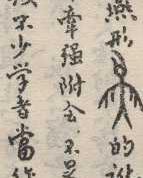 燕形的
牽强附会不
不少学者當